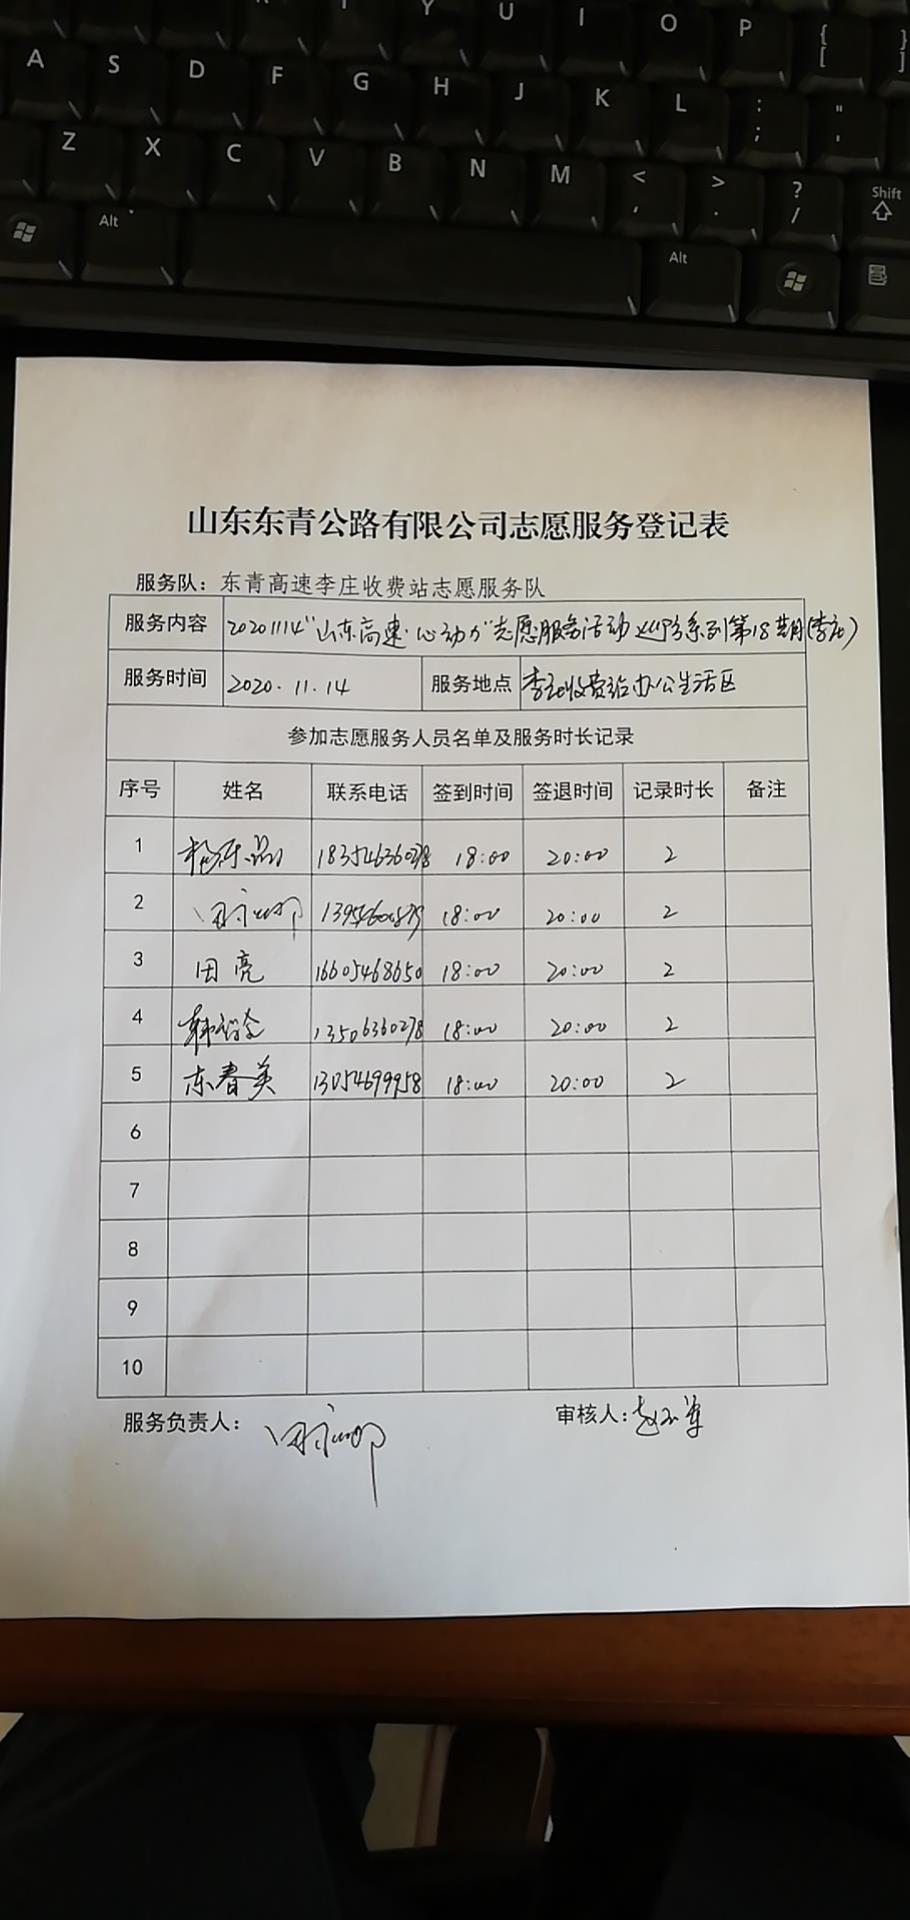 Y U I O P { [ } ]
A S D F G H J K L : ; " '
Z X C V B N M < , > . ? / Shift
Alt Alt
山东东青公路有限公司志愿服务登记表
服务队：东青高速李庄收费站志愿服务队
服务内容 20201114"山东高速·心动力"志愿服务活动 系列第18期(李庄)
服务时间 2020.11.14 服务地点 李庄收费站办公生活区
参加志愿服务人员名单及服务时长记录
序号 姓名 联系电话 签到时间 签退时间 记录时长 备注
1 18354636078 18:00 20:00 2
2 18:00 20:00 2
3 田亮 16605468650 18:00 20:00 2
4 13506360278 18:00 20:00 2
5 东春英 13054699958 18:00 20:00 2
6
7
8
9
10
服务负责人： 审核人：